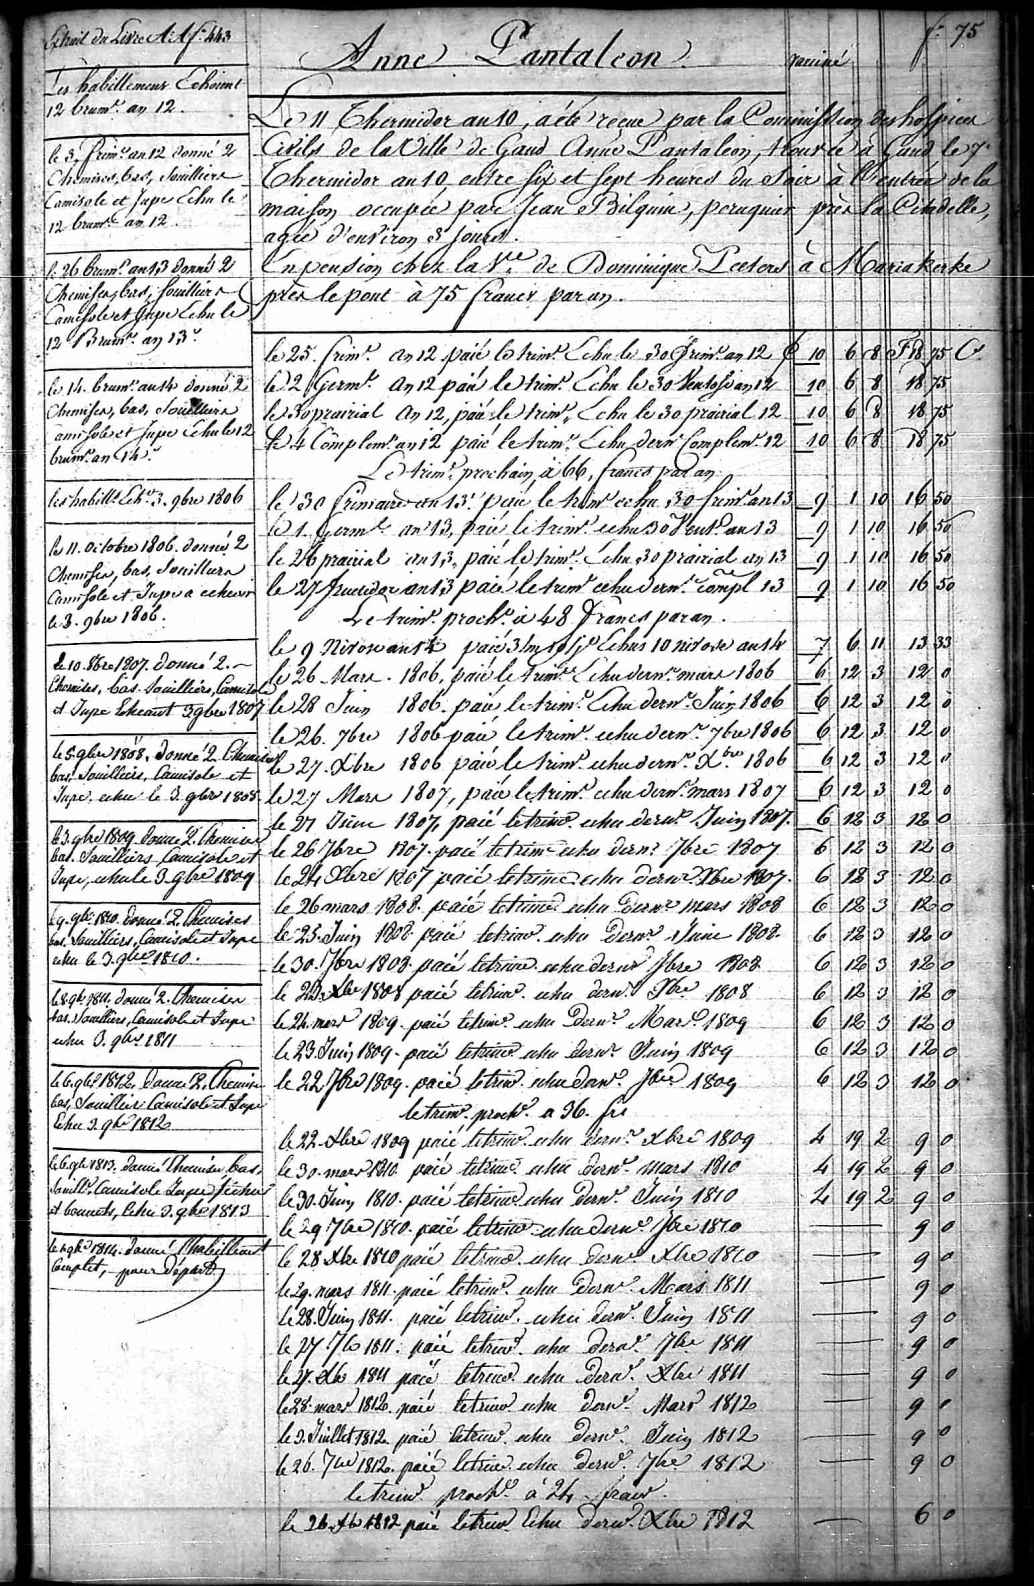 Extrait du Livre A. f° 443
f° 75
Anne Pantaleon
Les habillemens Echoient
12 brumre an 12.
le 3 frimre an 12 donné 2
Chemises, bas, souilliers
Camisole et Jupe Echu le
12 brumre an 12.
le 26 brumre an 13 donné 2
Chemises, bas, souilliers
Camisole et Jupe Echu le
12 Brumre an 13e
le 14 brumre an 14 donné 2
Chemises, bas, Souilliers
amisole et Jupe Echu le 12
brumre an 14e
les habillts Echt 3. 9bre 1806
les 11. octobre 1806. donné 2
Chemises, bas, Souilliers
Camisole et Jupe a echeoir
le 3. 9bre 1806.
le 10. 8bre 1807. donné 2.
Chemises, bas. Souilliers, Camisole
et Jupe Echeant 3 9bre 1807
le 5. 9bre 1808. donné 2 Chemises
bas, Souilliers, Camisole et
Jupe, echu le 3. 9bre 1808.
le 3. 9bre 1809 donné 2. Chemises
bas. Souilliers Camisole et
Jupe, echu le 3. 9bre 1809
le 9. 9bre 1810. donné 2. Chemises
bas. Souilliers, Camisole et Jupe
echu le 3. 9bre 1810.
le 8. 9bre 1811. donné 2. Chemises
bas. Souilliers, Camisole et Jupe
echu 3. 9bre 1811
le 6. 9bre 1812. donné 2. Chemises
bas, Souilliers Camisole et Jupe
Echu 3. 9bre 1812
le 6. 9bre 1813. donné Chemises bas.
Souillrs Camisole Jupe fichu
et bonnets, Echu 3. 9bre 1813
9bre 1814. donné l'habillement
Complet, pour départ
Le 11 Thermidor an 10, a été reçue par la Commission des hospices
Civils de la Ville de Gand Anne Pantaleon, trouvée à Gand le 7e
Thermidor an 10, entre six et sept heures du Soir à l'entrée de la
maison occupée par Jean Bilqum, peruquier près la Citadelle,
agée d'environ 8 jours.
En pension chez la Vve de Dominique Peeters à Mariakerke
près le pont à 75 francs par an.
le 25. frimre an 12 paié le trimre Echu le 30 frimre an 12 £ 10 6 8 F 18 75 Cs
le 2 Germl an 12 paié le trimre Echu le 30 Ventose an 12 10 6 8 18 75
le 30 prairial an 12, paié le trimre Echu le 30 prairial 12 10 6 8 18 75
le 4 Complemre an 12 paié le trimre Echu dernr Complemre 12 10 6 8 18 75
Le trimre prochain, à 66, francs par an
le 30 frimaire an 13e paié le trimre echu 30 frimre an 13 9 1 10 16 50
le 1. Germl an 13, paié le trimre echu 30 Ventse an 13 9 1 10 16 50
le 26 prairial an 13, paié le trimre Echu 30 prairial an 13 9 1 10 16 50
le 27 fructidor an 13 paié le trimre echu dernr compl 13 9 1 10 16 50
Le trimre prochn à 48 francs par an.
le 9 Nivose an 14 paié 3 m 10 jrs Echus 10 nivose an 14 7 6 11 13 33
le 26 Mars. 1806, paié le trimre Echu dernr mars 1806 6 12 3 12 0
le 28 Juin 1806. paié le trimre Echu dernr Juin 1806 6 12 3 12 0
le 26. 7bre 1806 paié le trimre echu dernr 7bre 1806 6 12 3 12 0
le 27. Xbre 1806 paié le trimre echu dernr Xbre 1806 6 12 3 12 0
le 27 Mars 1807, paié le trimre echu dernr mars 1807 6 12 3 12 0
le 27 Juin 1807, paié le trimre echu dernr Juin 1807. 6 12 3 12 0
le 26 7bre 1807. paié le trimre echu dernr 7bre 1807 6 12 3 12 0
le 24 Xbre 1807 paié le trimre echu dernr Xbre 1807. 6 12 3 12 0
le 26 mars 1808. paié le trimre echu dernr mars 1808 6 12 3 12 0
le 25. Juin 1808 paié le trimre echu dernr Juin 1808. 6 12 3 12 0
le 30. 7bre 1808. paié le trimre echu dernr 7bre 1808 6 12 3 12 0
le 22. Xbre 1808 paié le trimre echu dernr Xbre 1808 6 12 3 12 0
le 24. mars 1809. paié le trimre echu dernr Mars. 1809 6 12 3 12 0
le 23. Juin 1809. paié le trimre echu dernr Juin 1809 6 12 3 12 0
le 22 7bre 1809. paié le trimre echu dernr 7bre 1809 6 12 3 12 0
le trimre prochn a 36. frs
le 22. Xbre 1809 paié le trimre echu dernr Xbre 1809 4 19 2 9 0
le 30. mars 1810. paié le trimre echu dernr mars 1810 4 19 2 9 0
le 30. Juin 1810. paié le trimre echu dernr Juin 1810 4 19 2 9 0
le 29 7bre 1810. paié le trimre echu dernr 7bre 1810 9 0
le 28 Xbre 1810 paié le trimre echu dernr Xbre 1810 9 0
le 29. mars 1811. paié le trimre echu dernr Mars 1811 9 0
le 28. Juin 1811. paié le trimre echu dernr Juin 1811 9 0
le 27. 7bre 1811. paié le trimre echu dernr 7bre 1811 9 0
le 27. Xbre 1811 paié le trimre echu dernr Xbre 1811 9 0
le 28. mars 1812. paié le trimre echu dernr Mars 1812 9
le 3. Juillet 1812 paié le trimre echu dernr Juin 1812 9 0
le 26. 7bre 1812. paié le trimre echu dernr 7bre 1812 9 0
le trimre prochn à 24. francs
le 26. Xbre 1812 paié le trimre Echu dernr Xbre 1812 6 0